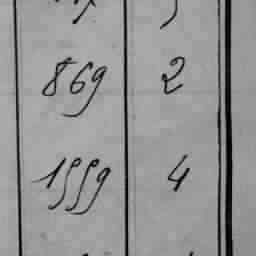 869 2
1559 4